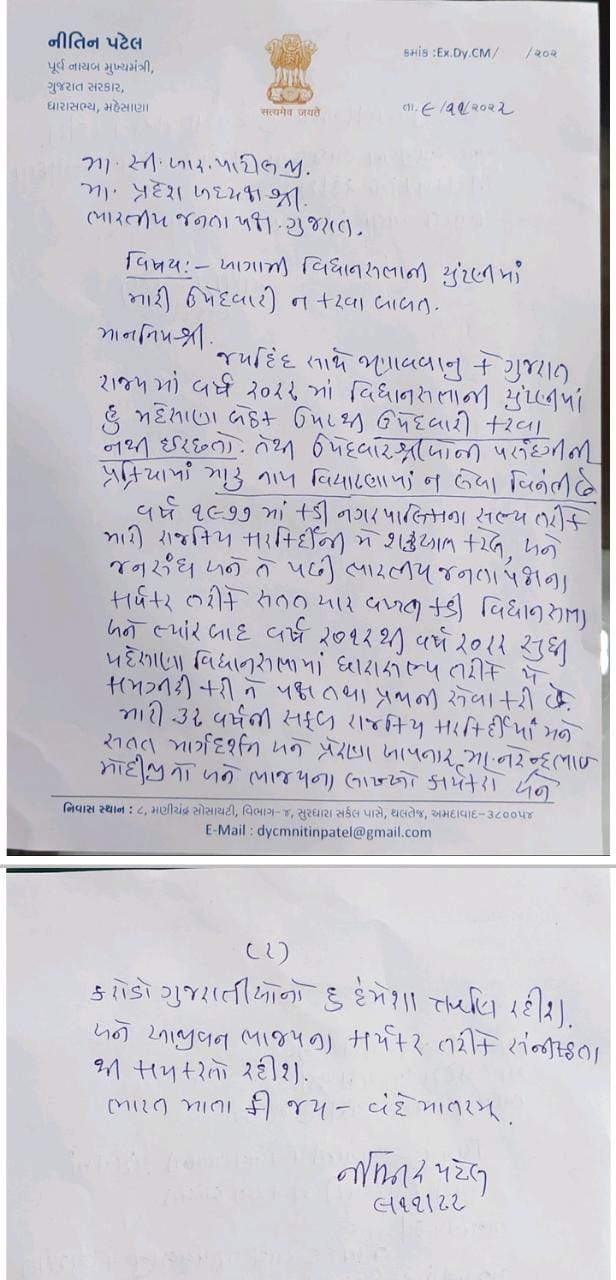 નીતિન પટેલ
પૂર્વ નાયબ મુખ્યમંત્રી,
ગુજરાત સરકાર,
ધારાસભ્ય, મહેસાણા
सत्यमेव जयते
ક્રમાંક :Ex.Dy.CM/ /૨૦૨
તા. ૯/૧૧/૨૦૨૨
મા. સી. આર. પાટીલજી.
મા. પ્રદેશ અધ્યક્ષ શ્રી.
ભારતીય જનતા પક્ષ. ગુજરાત.
વિષય:- આગામી વિધાનસભાની ચુંટણીમાં
મારી ઉમેદવારી ન કરવા બાબત.
માનનિયશ્રી.
જયહિંદ સાથે જણાવવાનુ કે ગુજરાત
રાજ્યમાં વર્ષ ૨૦૨૨ માં વિધાનસભાની ચુંટણીમાં
હુ મહેસાણા બેઠક ઉપરથી ઉમેદવારી કરવા
નથી ઈચ્છતો. તેથી ઉમેદવારશ્રીઓની પસંદગીની
પ્રક્રિયામાં મારૂ નામ વિચારણામાં ન લેવા વિનંતી છે
વર્ષ ૧૯૭૭ માં કડી નગરપાલિકાના સભ્ય તરીકે
મારી રાજકિય કારકિર્દીની મે શરૂઆત કરેલ, અને
જનસંઘ અને તે પછી ભારતીય જનતા પક્ષના
કાર્યકર તરીકે સતત ચાર વખત કડી વિધાનસભા
અને ત્યારબાદ વર્ષ ૨૦૧૨થી વર્ષ ૨૦૨૨ સુધી
મહેસાણા વિધાનસભામાં ધારાસભ્ય તરીકે મે
કામગીરી કરીને પક્ષ તથા પ્રજાની સેવા કરી છે.
મારી ૩૨ વર્ષની સફળ રાજકિય કારકિર્દીમાં મને
સતત માર્ગદર્શન અને પ્રેરણા આપનાર મા. નરેન્દ્રભાઈ
મોદીજીનો અને ભાજપના લાખ્ખો કાર્યકરો અને
નિવાસ સ્થાન : ૮, મણીચંદ્ર સોસાયટી, વિભાગ-૪, સુરધારા સર્કલ પાસે, થલતેજ, અમદાવાદ-૩૮૦૦૫૪
E-Mail : dycmnitinpatel@gmail.com
(૨)
કરોડો ગુજરાતીઓનો હુ હંમેશા રહીશ.
અને આજીવન ભાજપના કાર્યકર તરીકે સંનિષ્ઠતા
થી કાર્ય કરતો રહીશ.
ભારત માતા કી જય - વંદે માતરમ્.
નીતિન પટેલ
૯૧૧૨૨